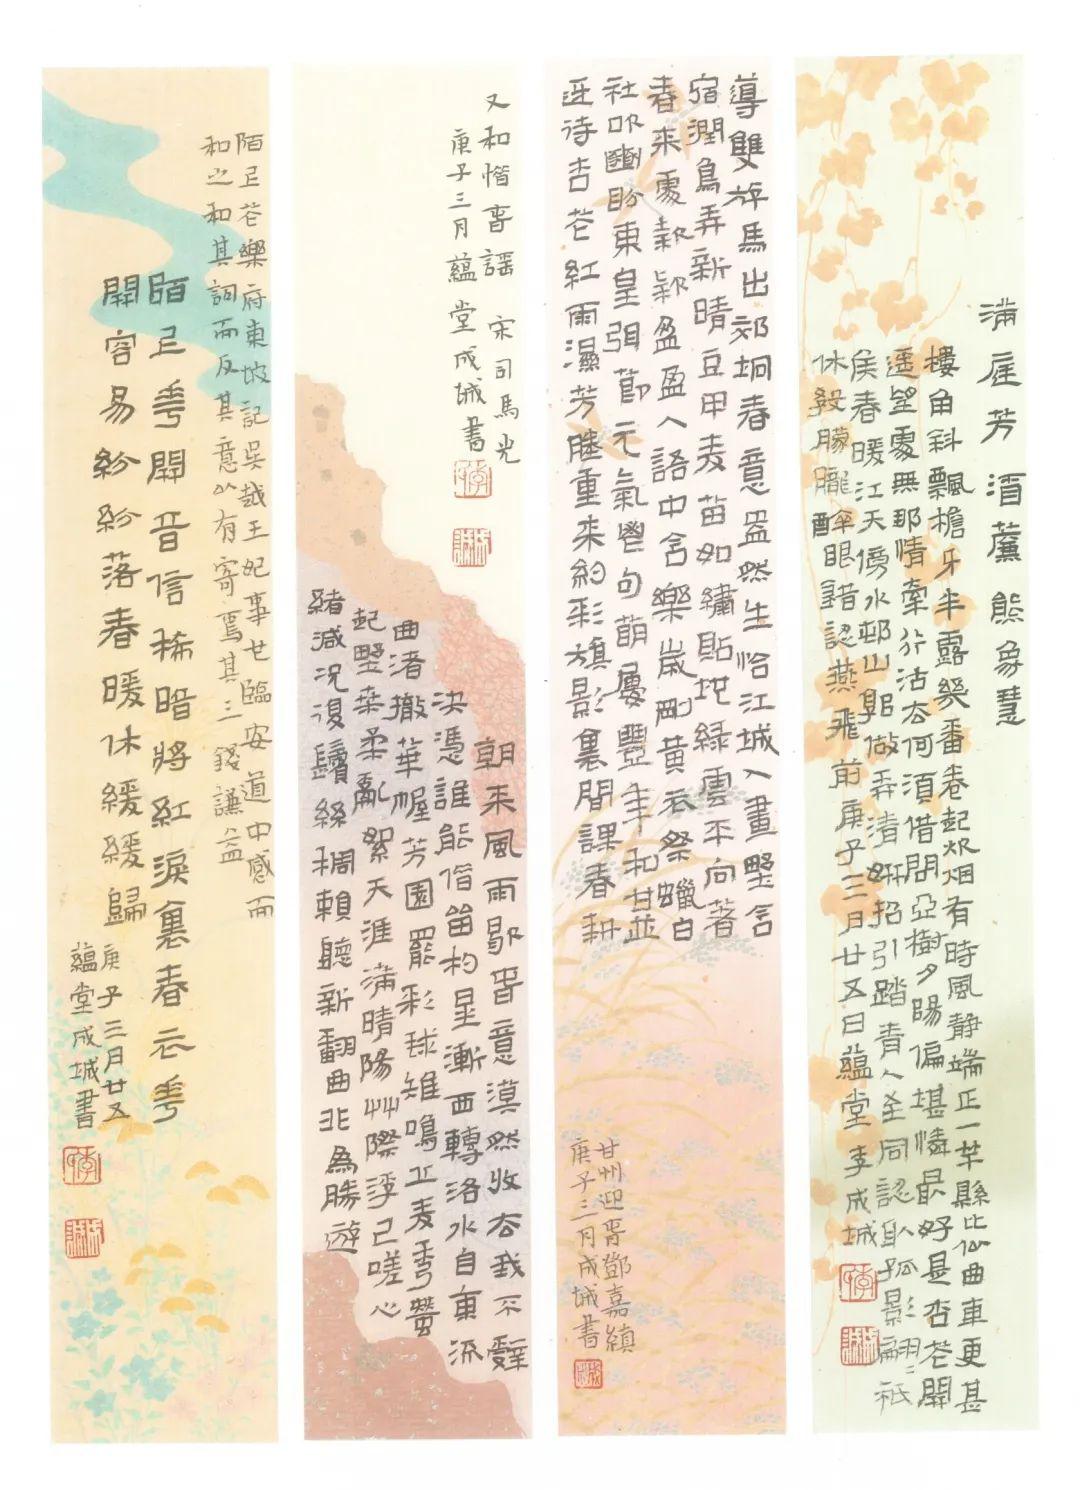 滿庭芳 酒簾 熊象慧
樓角斜飄檐牙半露幾番卷起炊烟有時風静端正一竿縣比似曲車更甚
遥望處無那情牽分沽去何須借問亞樹夕陽偏堪憐最好是杏花開
候春暖江天傍水邨山郭做弄清妍招引踏青人至同認取孤影翩翩祇
休殺朦朧傘眼錯認燕飛前庚子三月廿五日蘊堂李成城
醉
導雙旌馬出郊坰春意盎然生恰江城入畫墅含
宿潤鳥弄新晴豆甲麦苗如繡貼地綠雲平向著
春来處款款盈盈人語中含樂歲剛黄衣祭蠟白
社吹豳盼東皇弭節元氣鬯句萌慶豐年和甘並
迓待杏花紅雨濕芳塍重来約彩旗影裏閒課春耕
甘州迎春鄧嘉縝
庚子三月成城書
又和惜春謠 宋司馬光
庚子三月蘊堂成城書
朝来風雨歇春意漠然收去我不辭
決憑誰能借留杓星漸西轉洛水自東流
曲渚撤華幄芳園罷彩毬雉鳴丘麦秀蠶
起墅桑柔亂絮天涯滿晴陽艸際浮已嗟心
緒減况復鬢絲稠賴聽新翻曲非為勝遊
陌上花樂府東坡記吳越王妃事也臨安道中感而
和之和其詞而反其意以有寄焉其三 錢謙益
陌上華開音信稀暗將紅淚裏春衣華
開容易紛紛落春暖休緩緩歸
庚子三月廿五
蘊堂成城書